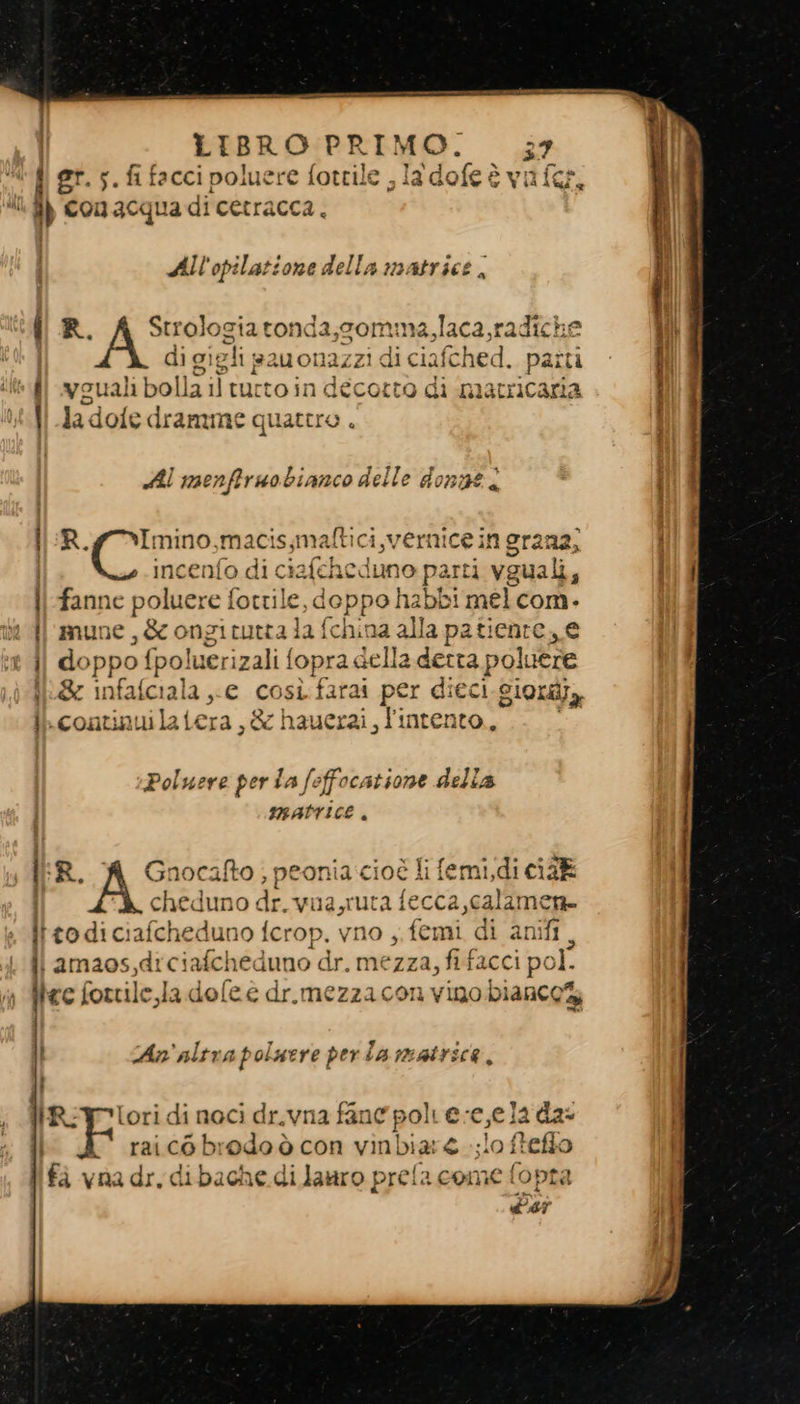 LIBRO PRIMO. 37
gr. 5. si facci poluere sottile, la dose è vn scr.
con acqua di cetracca.
All'opilatione della matrice.
R. AStrologia tonda, gomma, laca, radiche
di gigli pauonazzi di ciasched. parti
vguali bolla il tutto in decotto di matricaria
la dose dramme quattro.
Al menstruo bianco delle donne.
R. CImino, macis, mastici, vernice in grana,
incenso di ciascheduno parti vguali,
fanne poluere sottile, doppo habbi mel com-
mune, & ongi tutta la schina alla patiente, e
doppo spoluerizali sopra della detta poluere
& infasciala, e così farai per dieci giorni,
continui la sera, & hauerai, l'intento.
Poluere per la soffocatione della
matrice.
R. AGnocasto, peonia cioè li semi, di cias
cheduno dr. vna, ruta secca, calamen-
to di ciascheduno scrop. vno, semi di anisi,
amaos, di ciascheduno dr. mezza, si facci pol.
sottile, la dose è dr. mezza con vino bianco.
Vn'altra poluere per la matrice.
R. Fiori di noci dr. vna fanè polue e, e la da-
rai cõ brodo ò con vin biã e; lo stesso
fà vna dr. di bache di lauro presa come sopra
Per